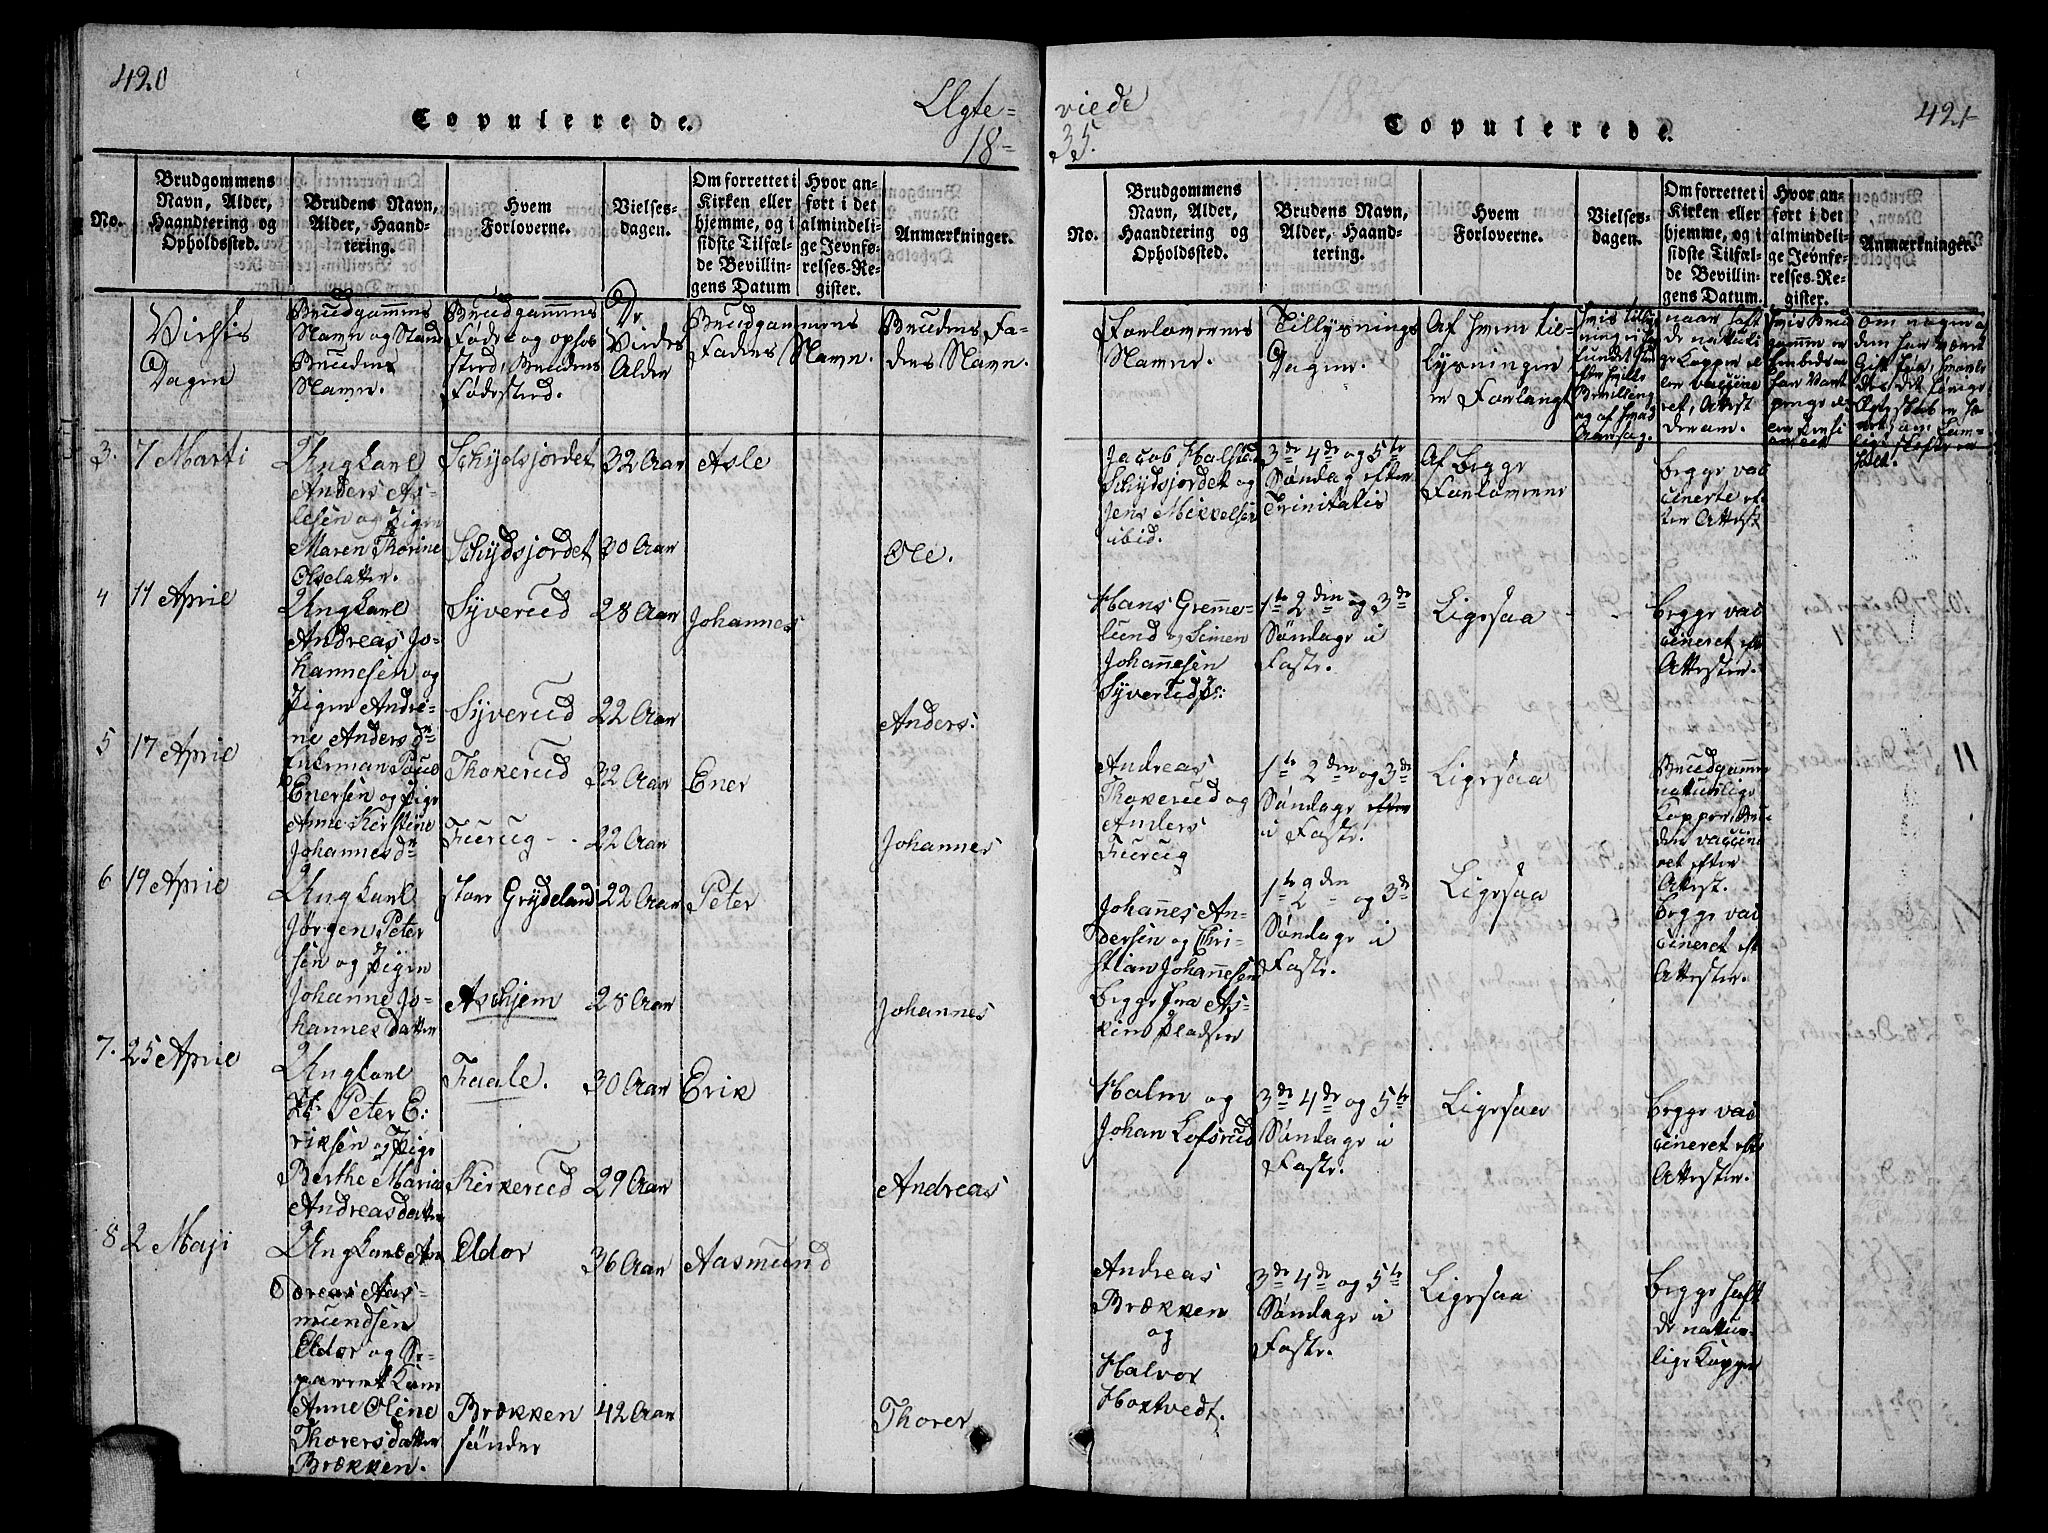 420
Copulerede.
Ægte-
18-
No.
Brudgommens
Navn, Alder,
Haandtering og
Opholdssted.
Brudens Navn,
Alder, Haand-
tering.
Hvem
Forloverne.
Vielses-
dagen.
Om forrettet i
Kirken eller
hjemme, og i
sidste Tilfæl-
de Bevillin-
gens Datum
Hvor an-
ført i det
almindeli-
ge Jevnfø-
relses-Re-
gister.
Anmærkninger.
Vielses
Dagen
Brudgommens
Navn og Stand
Brudens
Navn.
Brudgommens
Føde og ophol
sted, Brudens
Fødested.
De
Viedes
Alder
Brudgommens
Faders Navn.
Brudens Fa-
ders Navn.
3. 7 Marti
Ungkarl
Anders As-
lesen og Pigen
Maren Thorine
Olsdatter.
Schydsjordet 32 Aar Asle
Schydsjordet 30 Aar
Ole.
4 11 April
Ungkarl
Andreas Jo-
hannesen og
Pigen Andri-
ne Anders dr
Syverud 28 Aar Johannes
Syverud 22 Aar
Anders:
5 17 April
Enkemand Poul
Enersen og Pige
Anne Kerstine
Johannesdr
Thokerud 32 Aar Ener
Furug - - 22 Aar
Johannes
6 19 April
Ungkarl
Jørgen Peter
sen og Pigen
Johanne Jo-
hannes datter
store Grydeland 22 Aar Peter
Aschjem 28 Aar
Johannes
7. 25 April
Ungkarl
Peter E:
riksen og Pige
Berthe Maria
Andreasdatter
Faale. 30 Aar Erik
Kirkerud 29 Aar
Andreas
8 2 Maji
Ungkarl An
dreas Aas-
mundsen
Eldor og Se-
pareret Kone
Anne Oline
Thorersdatter
Brækken.
Eldor 36 Aar Aasmund
Brækken 42 Aar
sønder
Thorer
viede
35.
Copulerede.
421
No.
Brudgommens
Navn, Alder,
Haandtering og
Opholdssted.
Brudens Navn,
Alder, Haand-
tering.
Hvem
Forloverne.
Vielses-
dagen.
Om forrettet i
Kirken eller
hjemme, og i
sidste Tilfæl-
de Bevillin-
gens Datum.
Hvor an-
ført i det
almindeli-
ge Jevnfø-
relses-Re-
gister.
Anmærkninger.
Forlovernes
Navne.
Tillysnings
Dagene.
Af hvem til-
lysningen
er Forlangt
naar haft
de naturli
ge Kopper el
ler vaccine
ret, Attest
derom.
Jacob Halstad
Schydsjordet og
Jens Mikkelsen
ibid.
3de 4de og 5te
Søndag efter
Trinitatis
Af begge
Forloverne
begge vac
cinerte ef
ter Attest
Hans Gremme-
lund og Simen
Johannesen
Syverud
1te 2den og 3de
Søndage i
Faste.
Ligesaa
begge vac
cineret eft
Attester.
Andreas
Thokerud og
Anders
Furug
1te 2den og 3de
Søndage efter
i Faste.
Ligesaa
Brudgommen
naturlige
Kopper, Bru
den vaccine
ret efter
Attest.
Johanes An-
dersen og Chri-
stian Johannesen
begge fra As-
kim Pladsen
1te 2den og 3de
Søndage i
Faste.
Ligesaa
begge vac
cineret eft
Attester.
Holm og
Johan Lofsrud
3de 4de og 5te
Søndage i
Faste.
Ligesaa
begge vac
cineret eft
Attester.
Andreas
Brækken
og
Halvor
Hoxtvedt.
3de 4de og 5te
Søndage i
Faste.
Ligesaa
begge haft
de natur-
lige Kopper